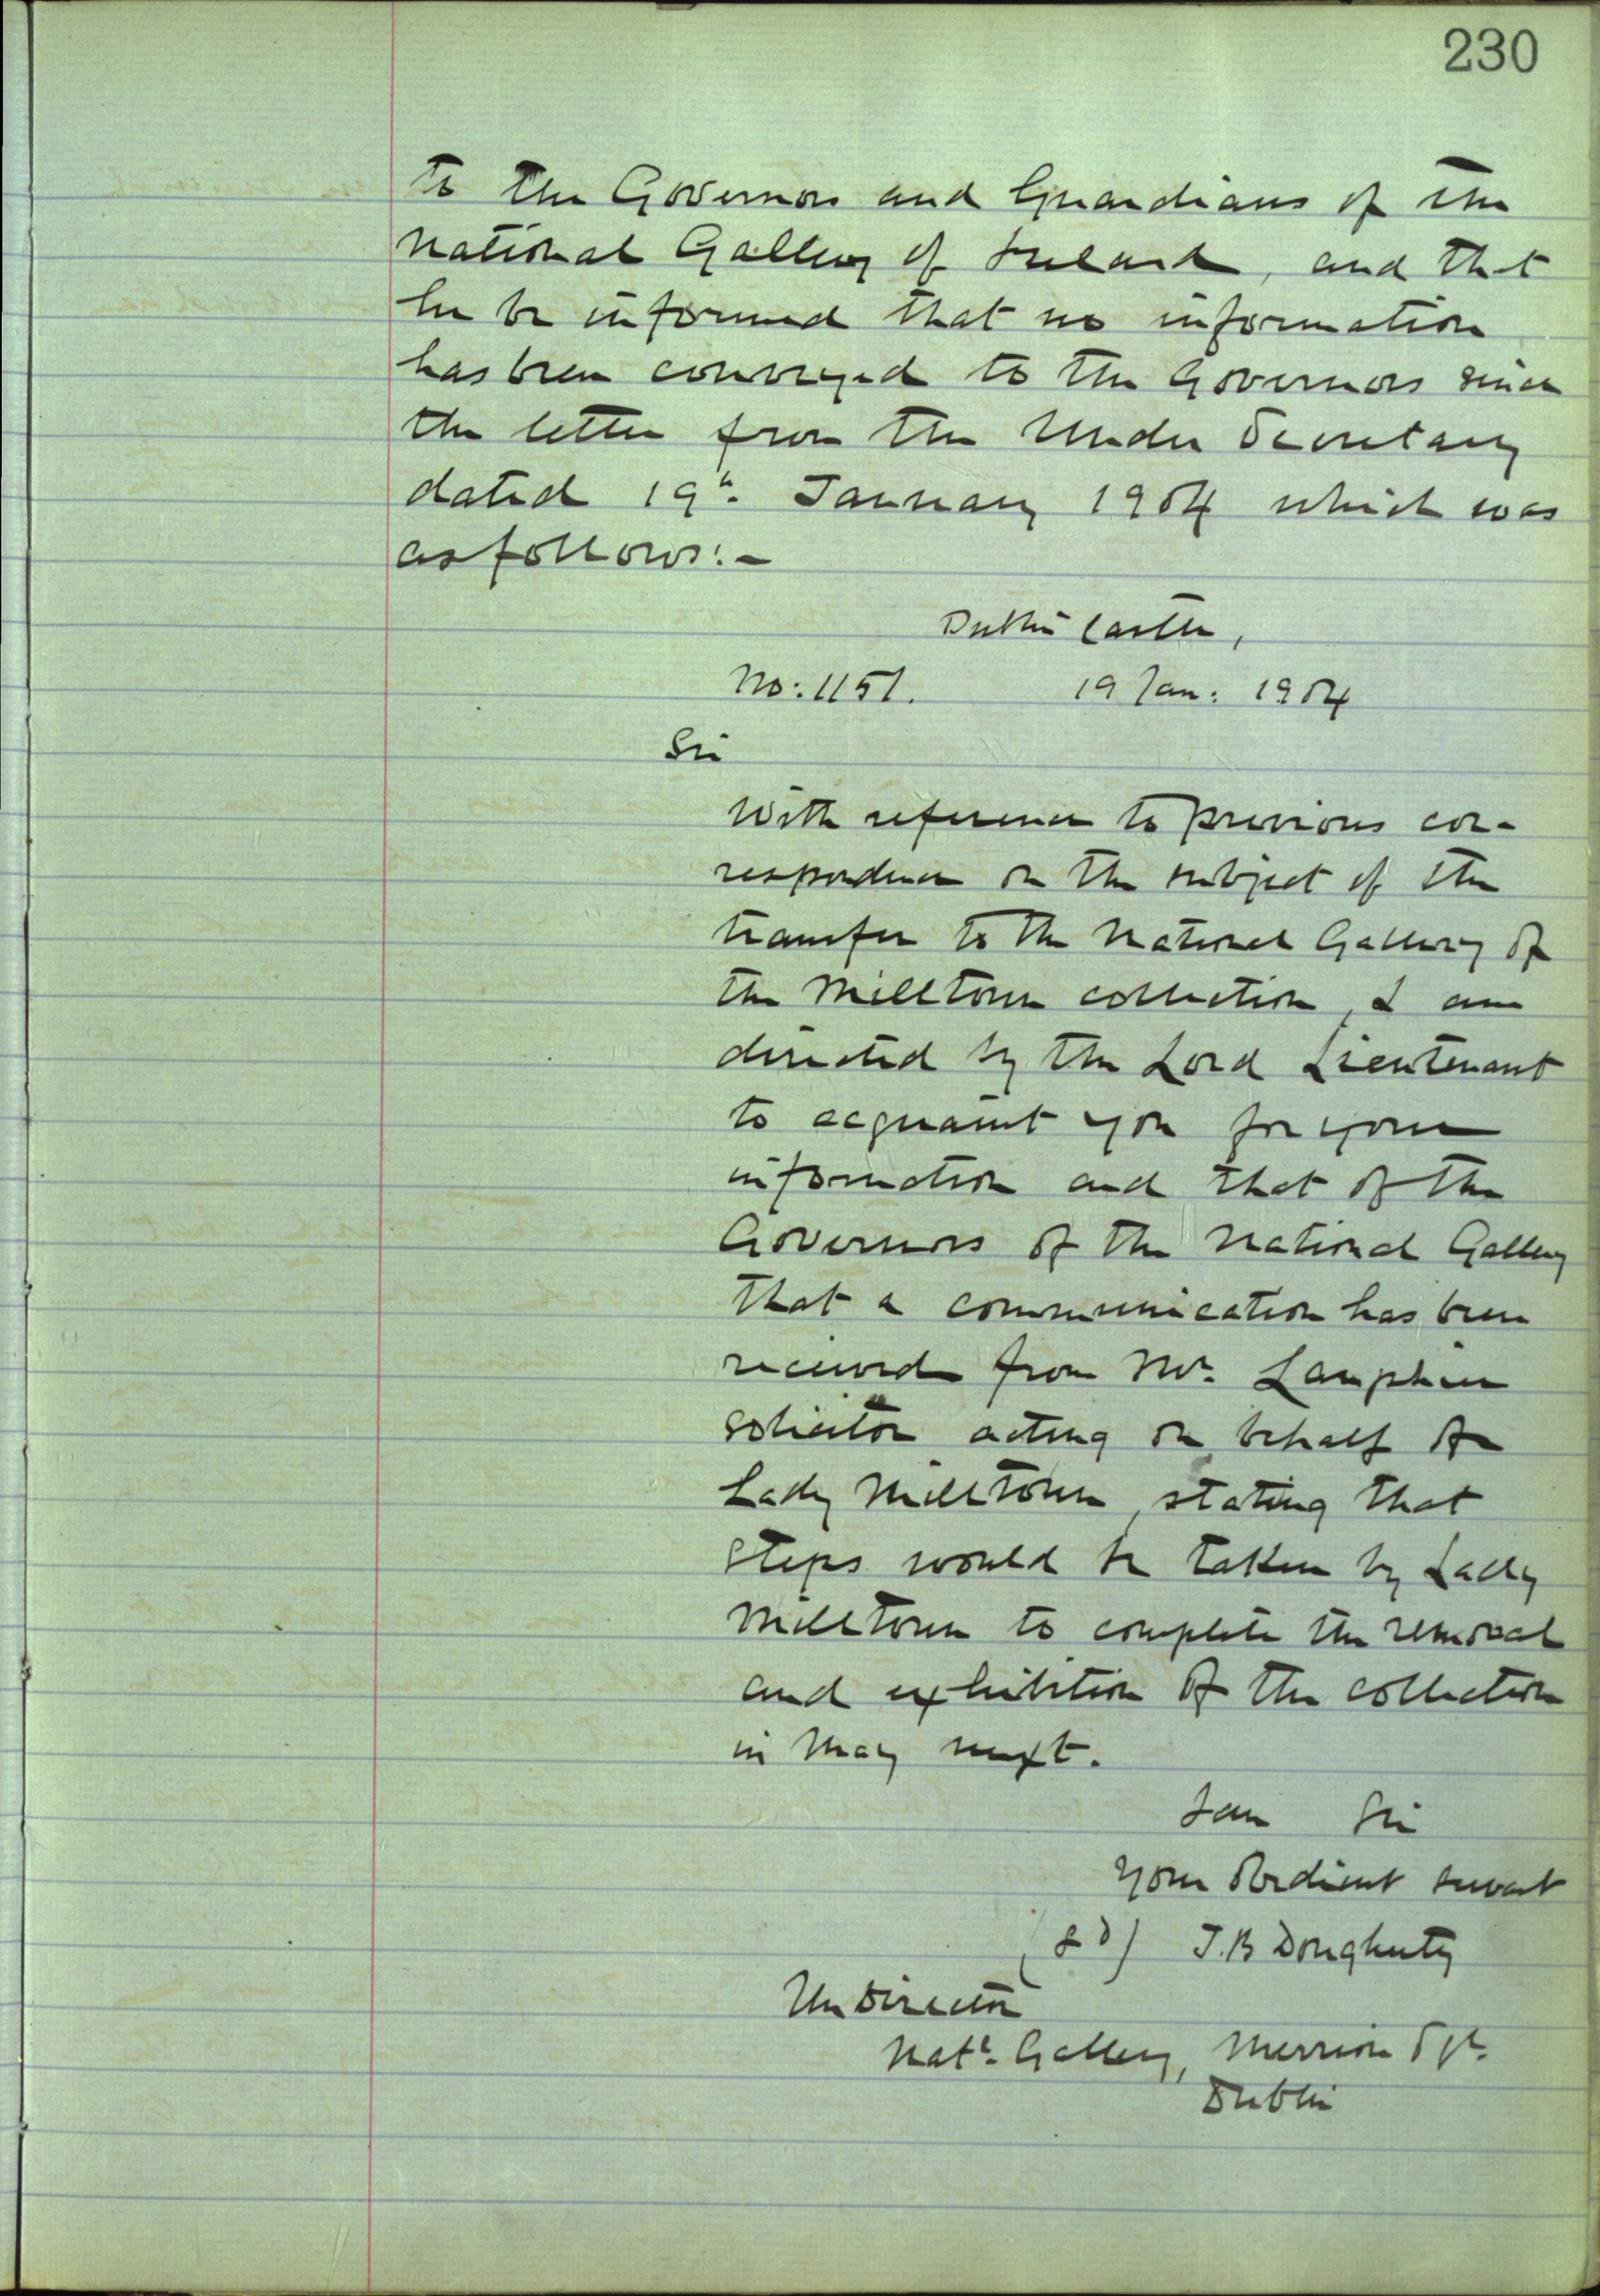 230
to the Governors and Guardians of the
National Gallery of Ireland, and that
he be informed that no information
has been conveyed to the Governors since
the letter from the Under Secretary
dated 19th January 1904 which was
as follows:-
Dublin Castle,
No: 1151. 19 Jan: 1904
Sir
With reference to previous cor-
respondence on the subject of the
transfer to the National Gallery of
the Milltown collection, I am
directed by the Lord Lieutenant
to acquaint you for your
information and that of the
Governors of the National Gallery
that a communication has been
received from Mr. Lanphier
solicitor acting on behalf of
Lady Milltown, stating that
steps would be taken by Lady
Milltown to complete the removal
and exhibition of the collection
in May next.
I am Sir
Your Obedient servant
(sd) J.B Dougherty
The Director
Natl. Gallery, Merrion Sqr.
Dublin